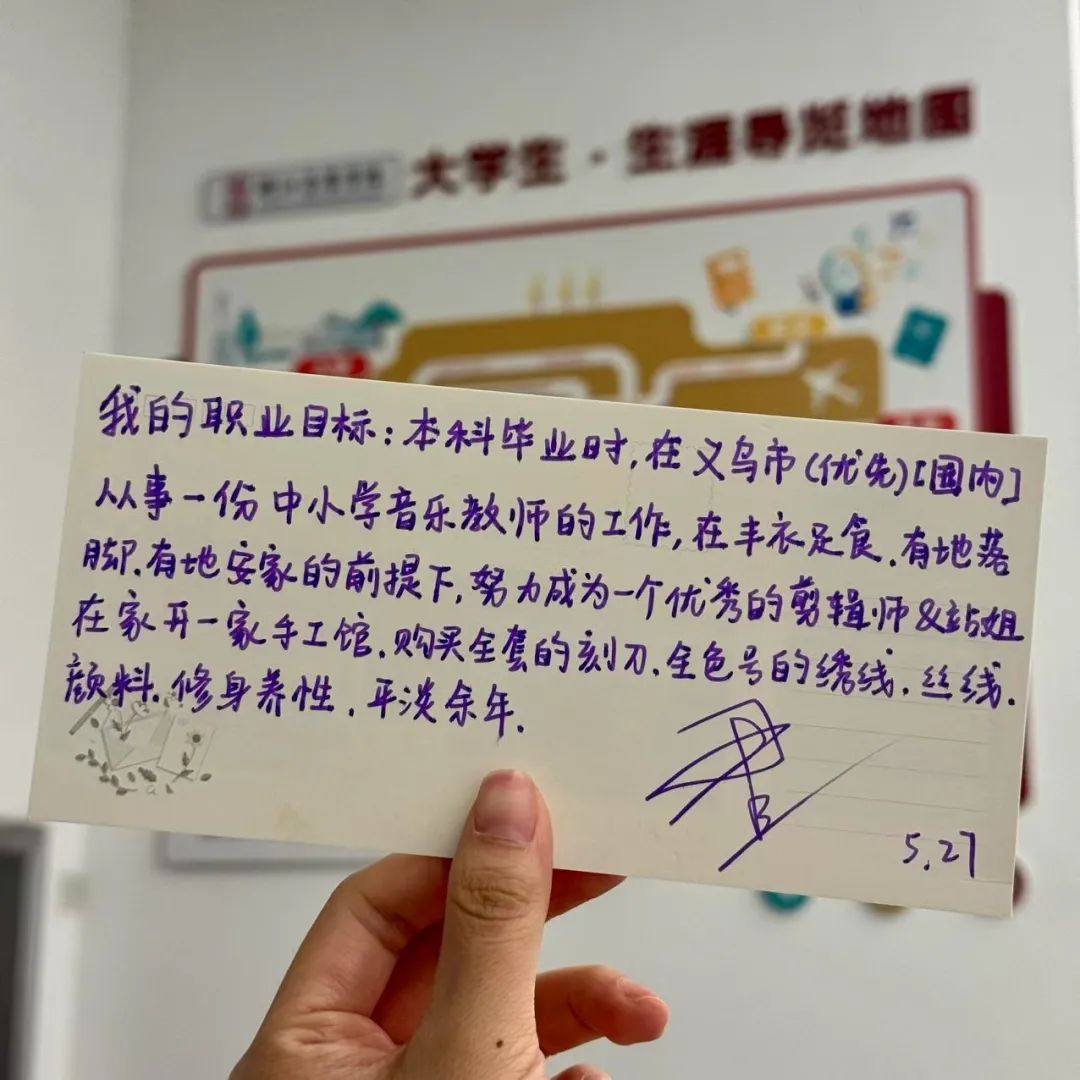 大学生·生涯导览地图
我的职业目标:本科毕业时,在义乌市(优先)[国内]
从事一份中小学音乐教师的工作,在丰衣足食.有地落
脚.有地安家的前提下,努力成为一个优秀的剪辑师&站姐
在家开一家手工馆.购买全套的刻刀.全色号的绣线.丝线.
颜料.修身养性.平淡余年.
5.27